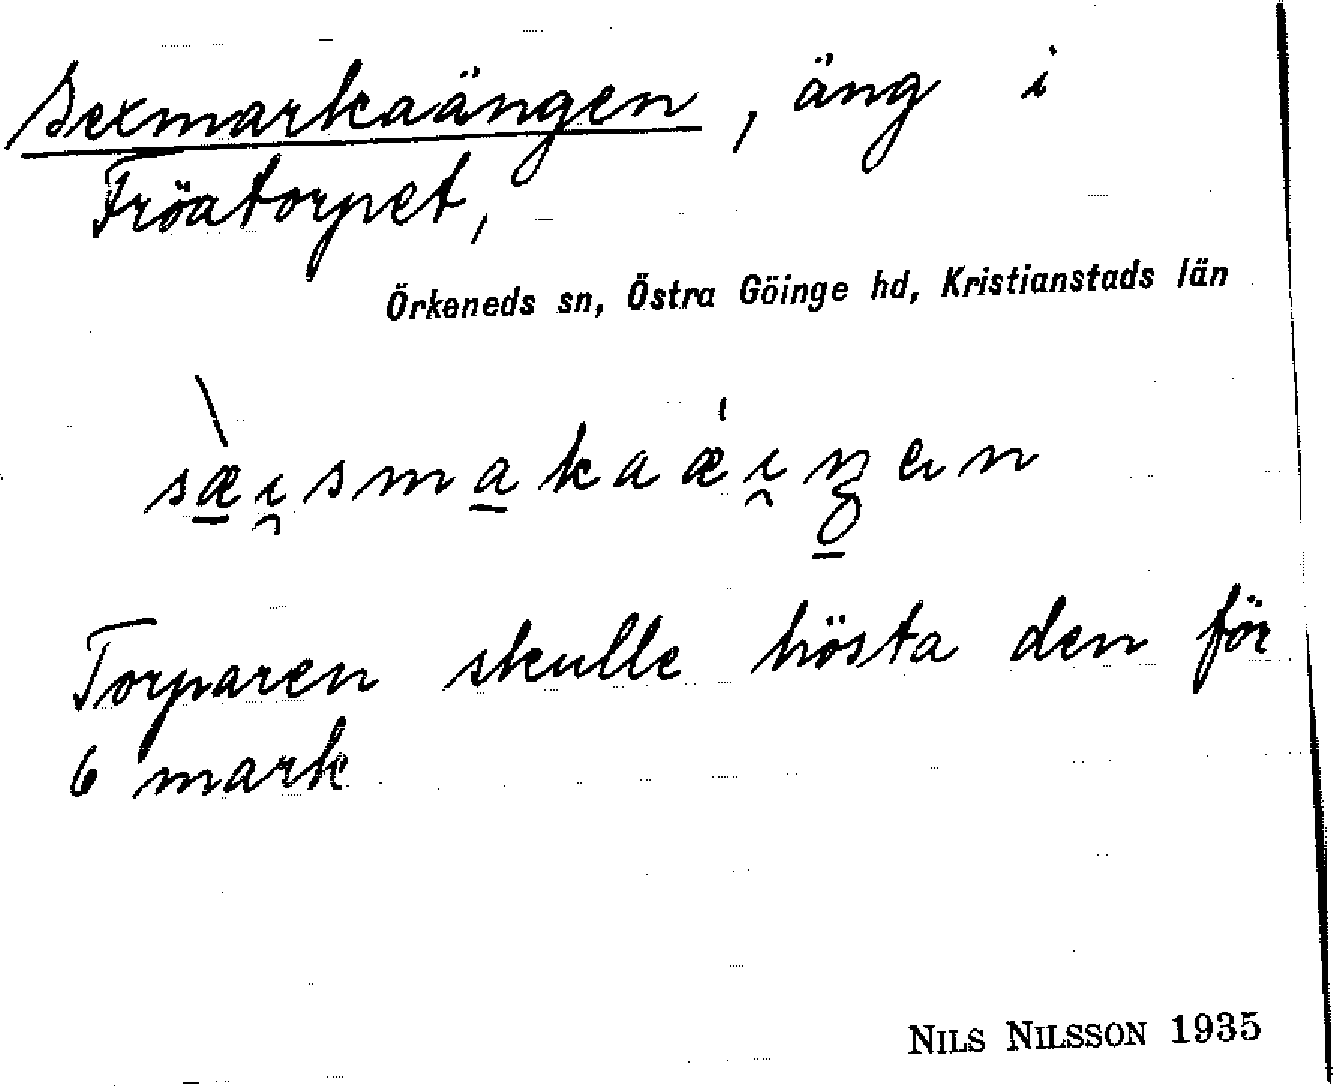 Sexmarkaängen, äng i
Fröatorpet,
Örkeneds sn, Östra Göinge hd, Kristianstads län
sæ̀ismakaæ'iŋen
Torparen skulle hösta den för
6 mark
NILS NILSSON 1935